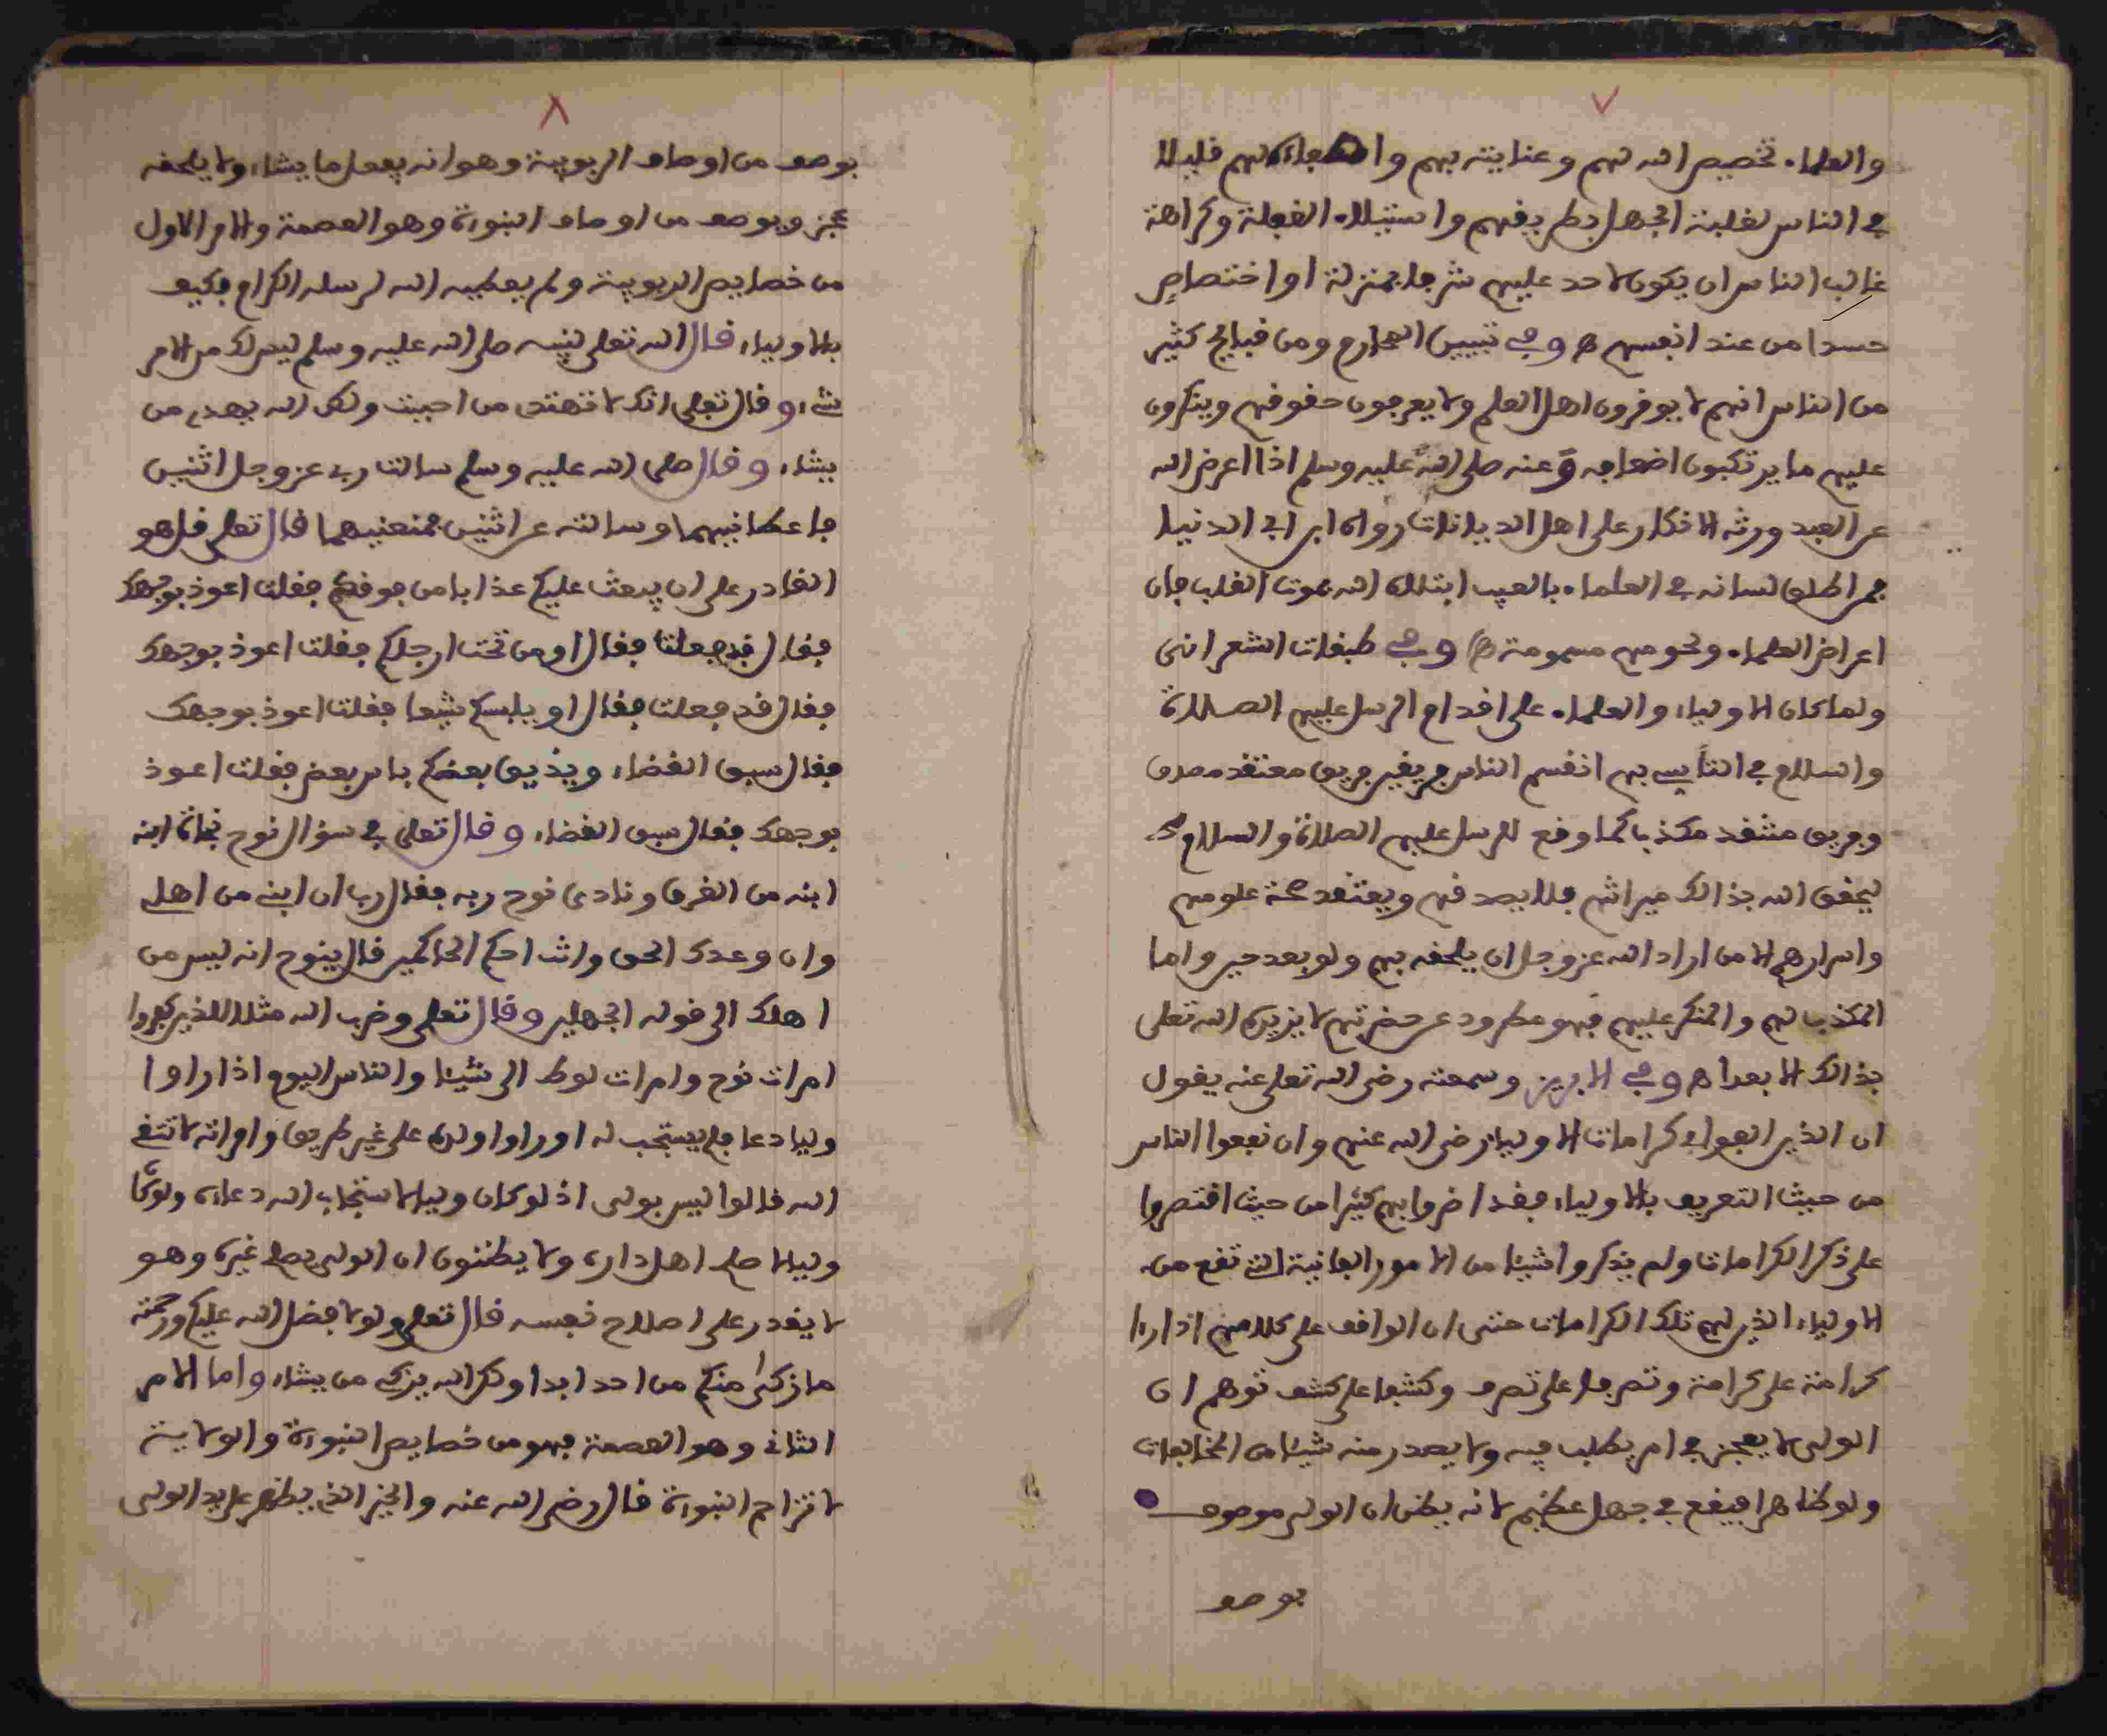 ٧
والعلماء تخصيص الله لهم وعنايته بهم واصطفاءه لهم قليلا
في الناس لغلبة الجهل بطريقهم واستيلاء الغفلة وكراهة
غالب الناس ان يكون لاحد عليهم شرفا بمنزلة او اختصاص
حسدا من عند انفسهم ه وفي تبيين المحارم ومن قبايح كثير
من الناس انهم لا يوقرون اهل العلم ولا يعرفون حقوقهم وينكرون
عليهم ما يرتكبون اضعافه وعنه صلى الله عليه وسلم اذا اعرض الله
عن العبد ورثه الانكار على اهل الديانات رواه ابن ابي الدنيا
فمن اطلق لسانه في العلماء بالعيب ابتلاه الله بموت القلب فان
اعراض العلماء ولحومهم مسمومة ه وفي طبقات الشعراني
ولما كان الاولياء والعلماء على اقدام الرسل عليهم الصلاة
والسلام في التأسي بهم انقسم الناس فريقين فريق معتقد مصدق
وفريق منتقد مكذب كما وقع للرسل عليهم الصلاة والسلام
ليحقق الله بذالك ميراثهم فلا يصدقهم ويعتقد صحة علومهم
واسرارهم الا من اراد الله عز وجل ان يلحقه بهم ولو بعد حين واما
المكذب لهم والمنكر عليهم فهو مطرود عن حضرتهم لا يزيده الله تعلى
بذالك الا بعدا ه وفي الابريز وسمعته رضي الله تعلى عنه يقول
ان الذين الفوا في كرامات الاولياء رضي الله عنهم وان نفعوا الناس
من حيث التعريف بالاولياء فقد اضروا بهم كثيرا من حيث اقتصروا
على ذكر الكرامات ولم يذكروا شيئا من الامور الفانية التي تقع من
الاولياء الذين لهم تلك الكرامات حتى ان الواقف على كلامهم اذا راا
كرامة على كرامة وتصرفا على تصرف وكشفا على كشف توهم ان
الولي لا يعجز في امر يطلب فيه ولا يصدر منه شيئا من المخالفات
ولو ظاهرا فيقع في جهل عظيم لانه يظن ان الولي موصوف
بوصف
٨
بوصف من اوصاف الربوبية وهو انه يفعل ما يشاء ولا يلحقه
عجز وبوصف من اوصاف النبوءة وهو العصمة والامر الاول
من خصايص الربوبية ولم يعطيه الله لرسله الكرام فكيف
بالاولياء قال الله تعلى لنبيه صلى الله عليه وسلم ليس لك من الامر
شيء وقال تعلى انك لا تهتدي من احببت ولكن الله يهدي من
يشاء وقال صلى الله عليه وسلم سالت ربي عز وجل اثنين
فاعطانيهما وسالته عن اثنين فمنعنيهما قال تعلى قل هو
القادر على ان يبعث عليكم عذابا من فوقكم فقلت اعوذ بوجهك
فقال قد فعلت فقال او من تحت ارجلكم فقلت اعوذ بوجهك
فقال قد فعلت فقال او يلبسكم شيعا فقلت اعوذ بوجهك
فقال سبق القضاء ويذيق بعضكم باس بعض فقلت اعوذ
بوجهك فقال سبق القضاء وقال تعلى في سؤال نوح نجاة ابنه
ابنه من الغرق ونادى نوح ربه فقال رب ان ابني من اهلي
وان وعدك الحق وانت احكم الحاكمين قال ينوح انه ليس من
اهلك الى قوله الجهلين وقال تعلى وضرب الله مثلا للذين كفروا
امرات نوح وامرات لوط الى شيئا والناس اليوم اذا راوا
وليا دعا فلم يستجب له او راوا ولده على غير طريق وامراته لا تتقي
الله قالوا ليس بولي اذ لو كان وليا لاستجاب الله دعاءه ولو كان
وليا لاصلح اهل داره ولا يظنون ان الولي يصلح غيره وهو
لا يقدر على اصلاح نفسه قال تعلى ولولا فضل الله عليكم ورحمته
ما زكى منكم من احد ابدا ولكن الله يزكي من يشاء واما الامر
الثاني وهو العصمة فهو من خصايص النبوءة والولاية
لا تزاحم النبوءة قال رضي الله عنه والخير الذي يظهر على يد الولي